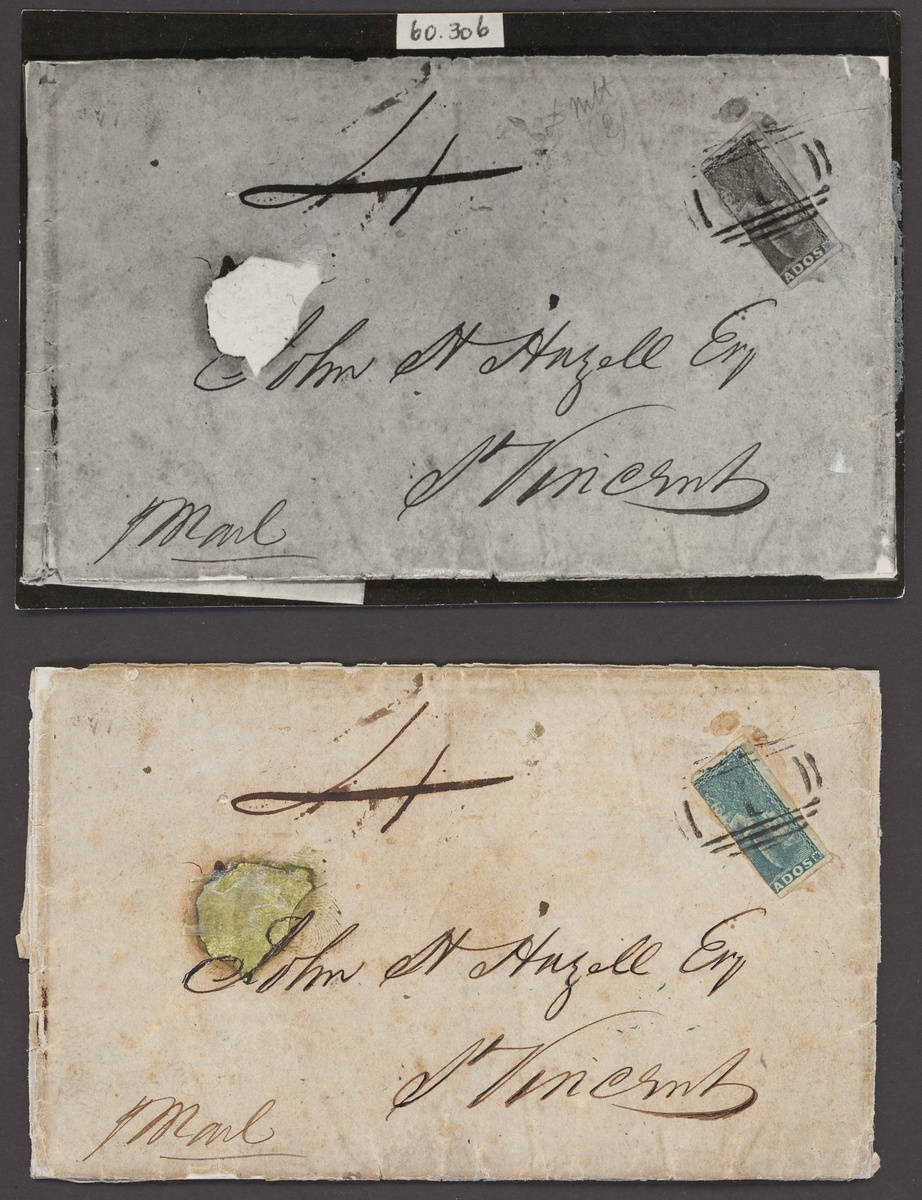 60.306
4
ADOS
John H Hazell Esq
St Vincent
p Mail
4
ADOS
John H Hazell Esq
St Vincent
p Mail